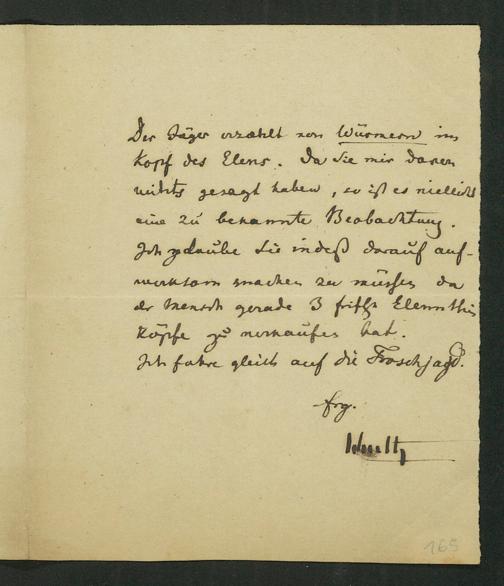 Der Jäger erzählt von Würmern im
Kopf des Elens. Da Sie mir davon
nichts gesagt haben, so ist es vielleicht
eine zu bekannte Beobachtung.
Ich glaube Sie indeß darauf auf-
merksam machen zu müssen da
der Mensch gerade 3 frische Elennthier
Köpfe zu verkaufen hat.
Ich fahre gleich auf die Froschjagd.
165